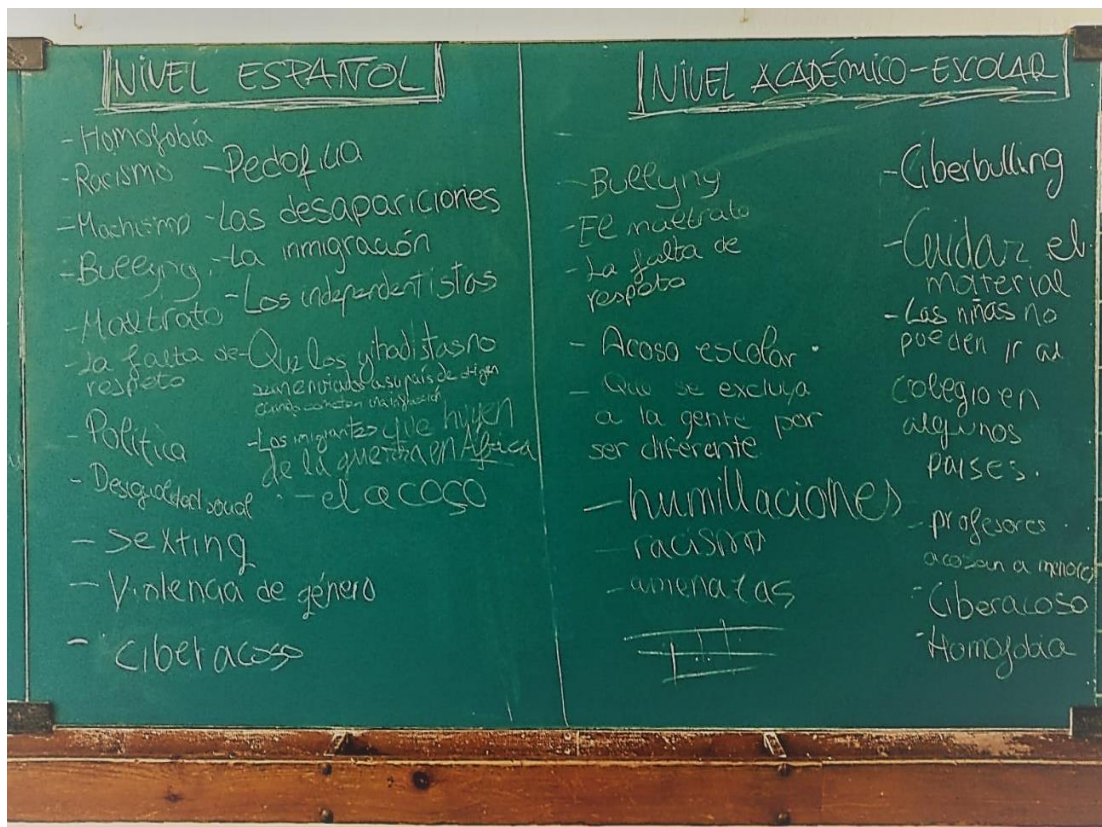 NIVEL ESPAÑOL
- Homofobia
- Racismo
- Machismo
- Bullying
- Maltrato
- La falta de
respeto
- Política
- Desigualdad social
- sexting
- Violencia de género
- ciberacoso
- Pedofilia
- Las desapariciones
- La inmigración
- Los independentistas
- Que los yihadistas no
sean enviados a su país de origen
cuando cometen una infracción
- Los inmigrantes que huyen
de la guerra en África
- el acoso
NIVEL ACADÉMICO-ESCOLAR
- Bullyng
- El maltrato
- La falta de
respeto
- Acoso escolar.
- Que se excluya
a la gente por
ser diferente.
- humillaciones
- racismo
- amenazas
- Ciberbulling
- Cuidar el
material
- Las niñas no
pueden ir al
colegio en
algunos
países.
- profesores
acosan a menores
- Ciberacoso
- Homofobia